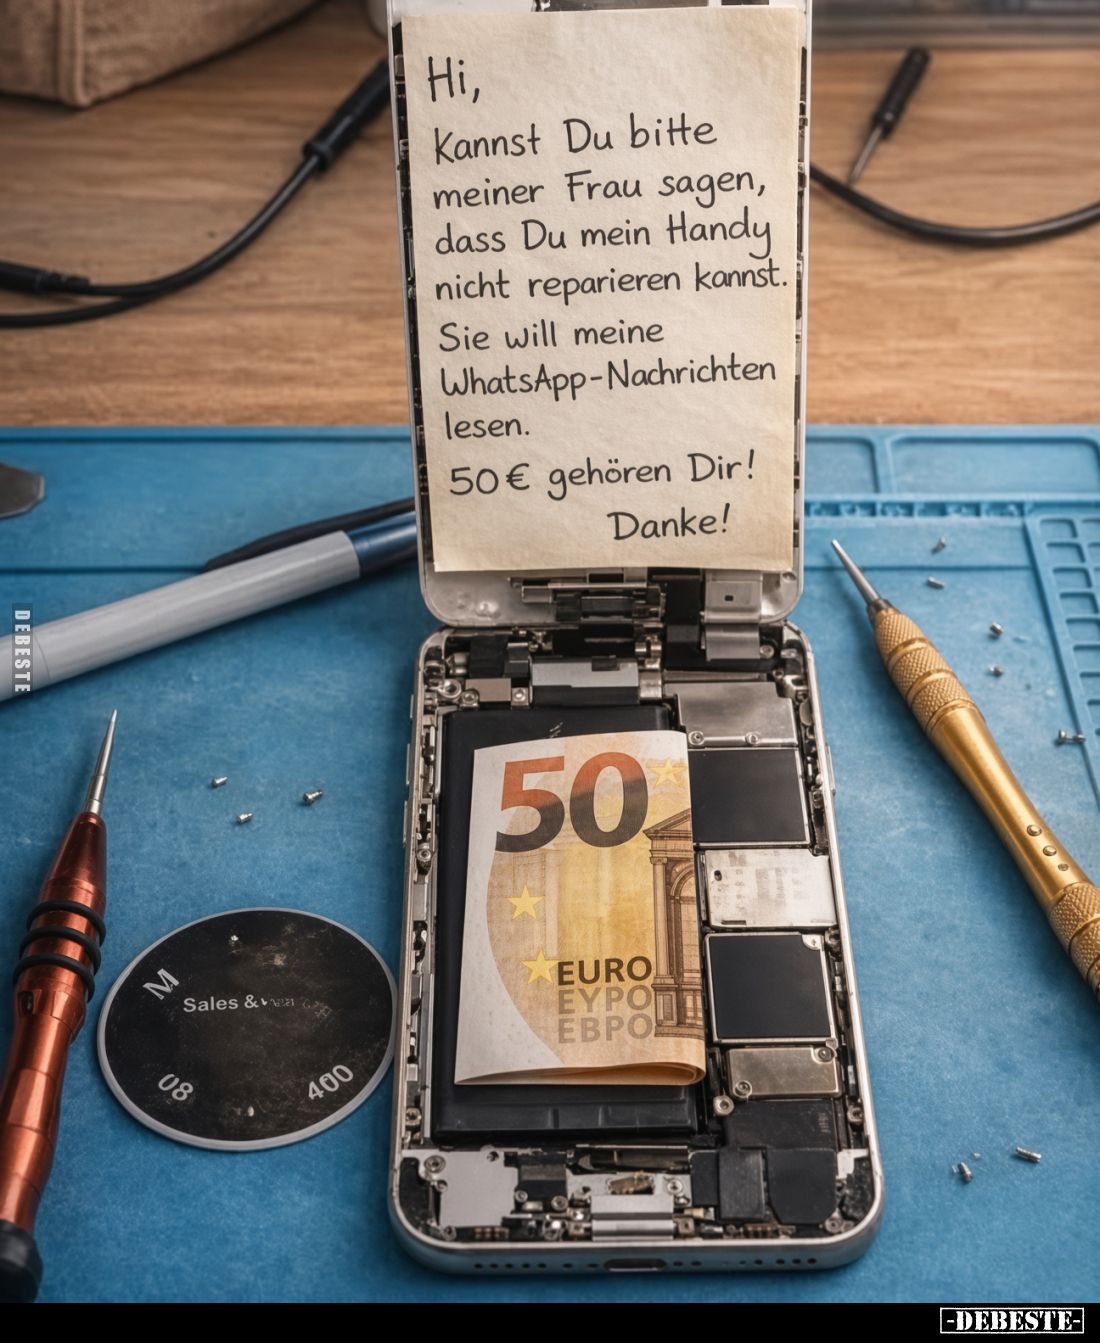 Hi,
Kannst Du bitte
meiner Frau sagen,
dass Du mein Handy
nicht reparieren kannst.
Sie will meine
WhatsApp-Nachrichten
lesen.
50 € gehören Dir!
Danke!
DEBESTE
50
EURO
ΕΥΡΩ
ЕВРО
M
Sales &
08
400
-DEBESTE-